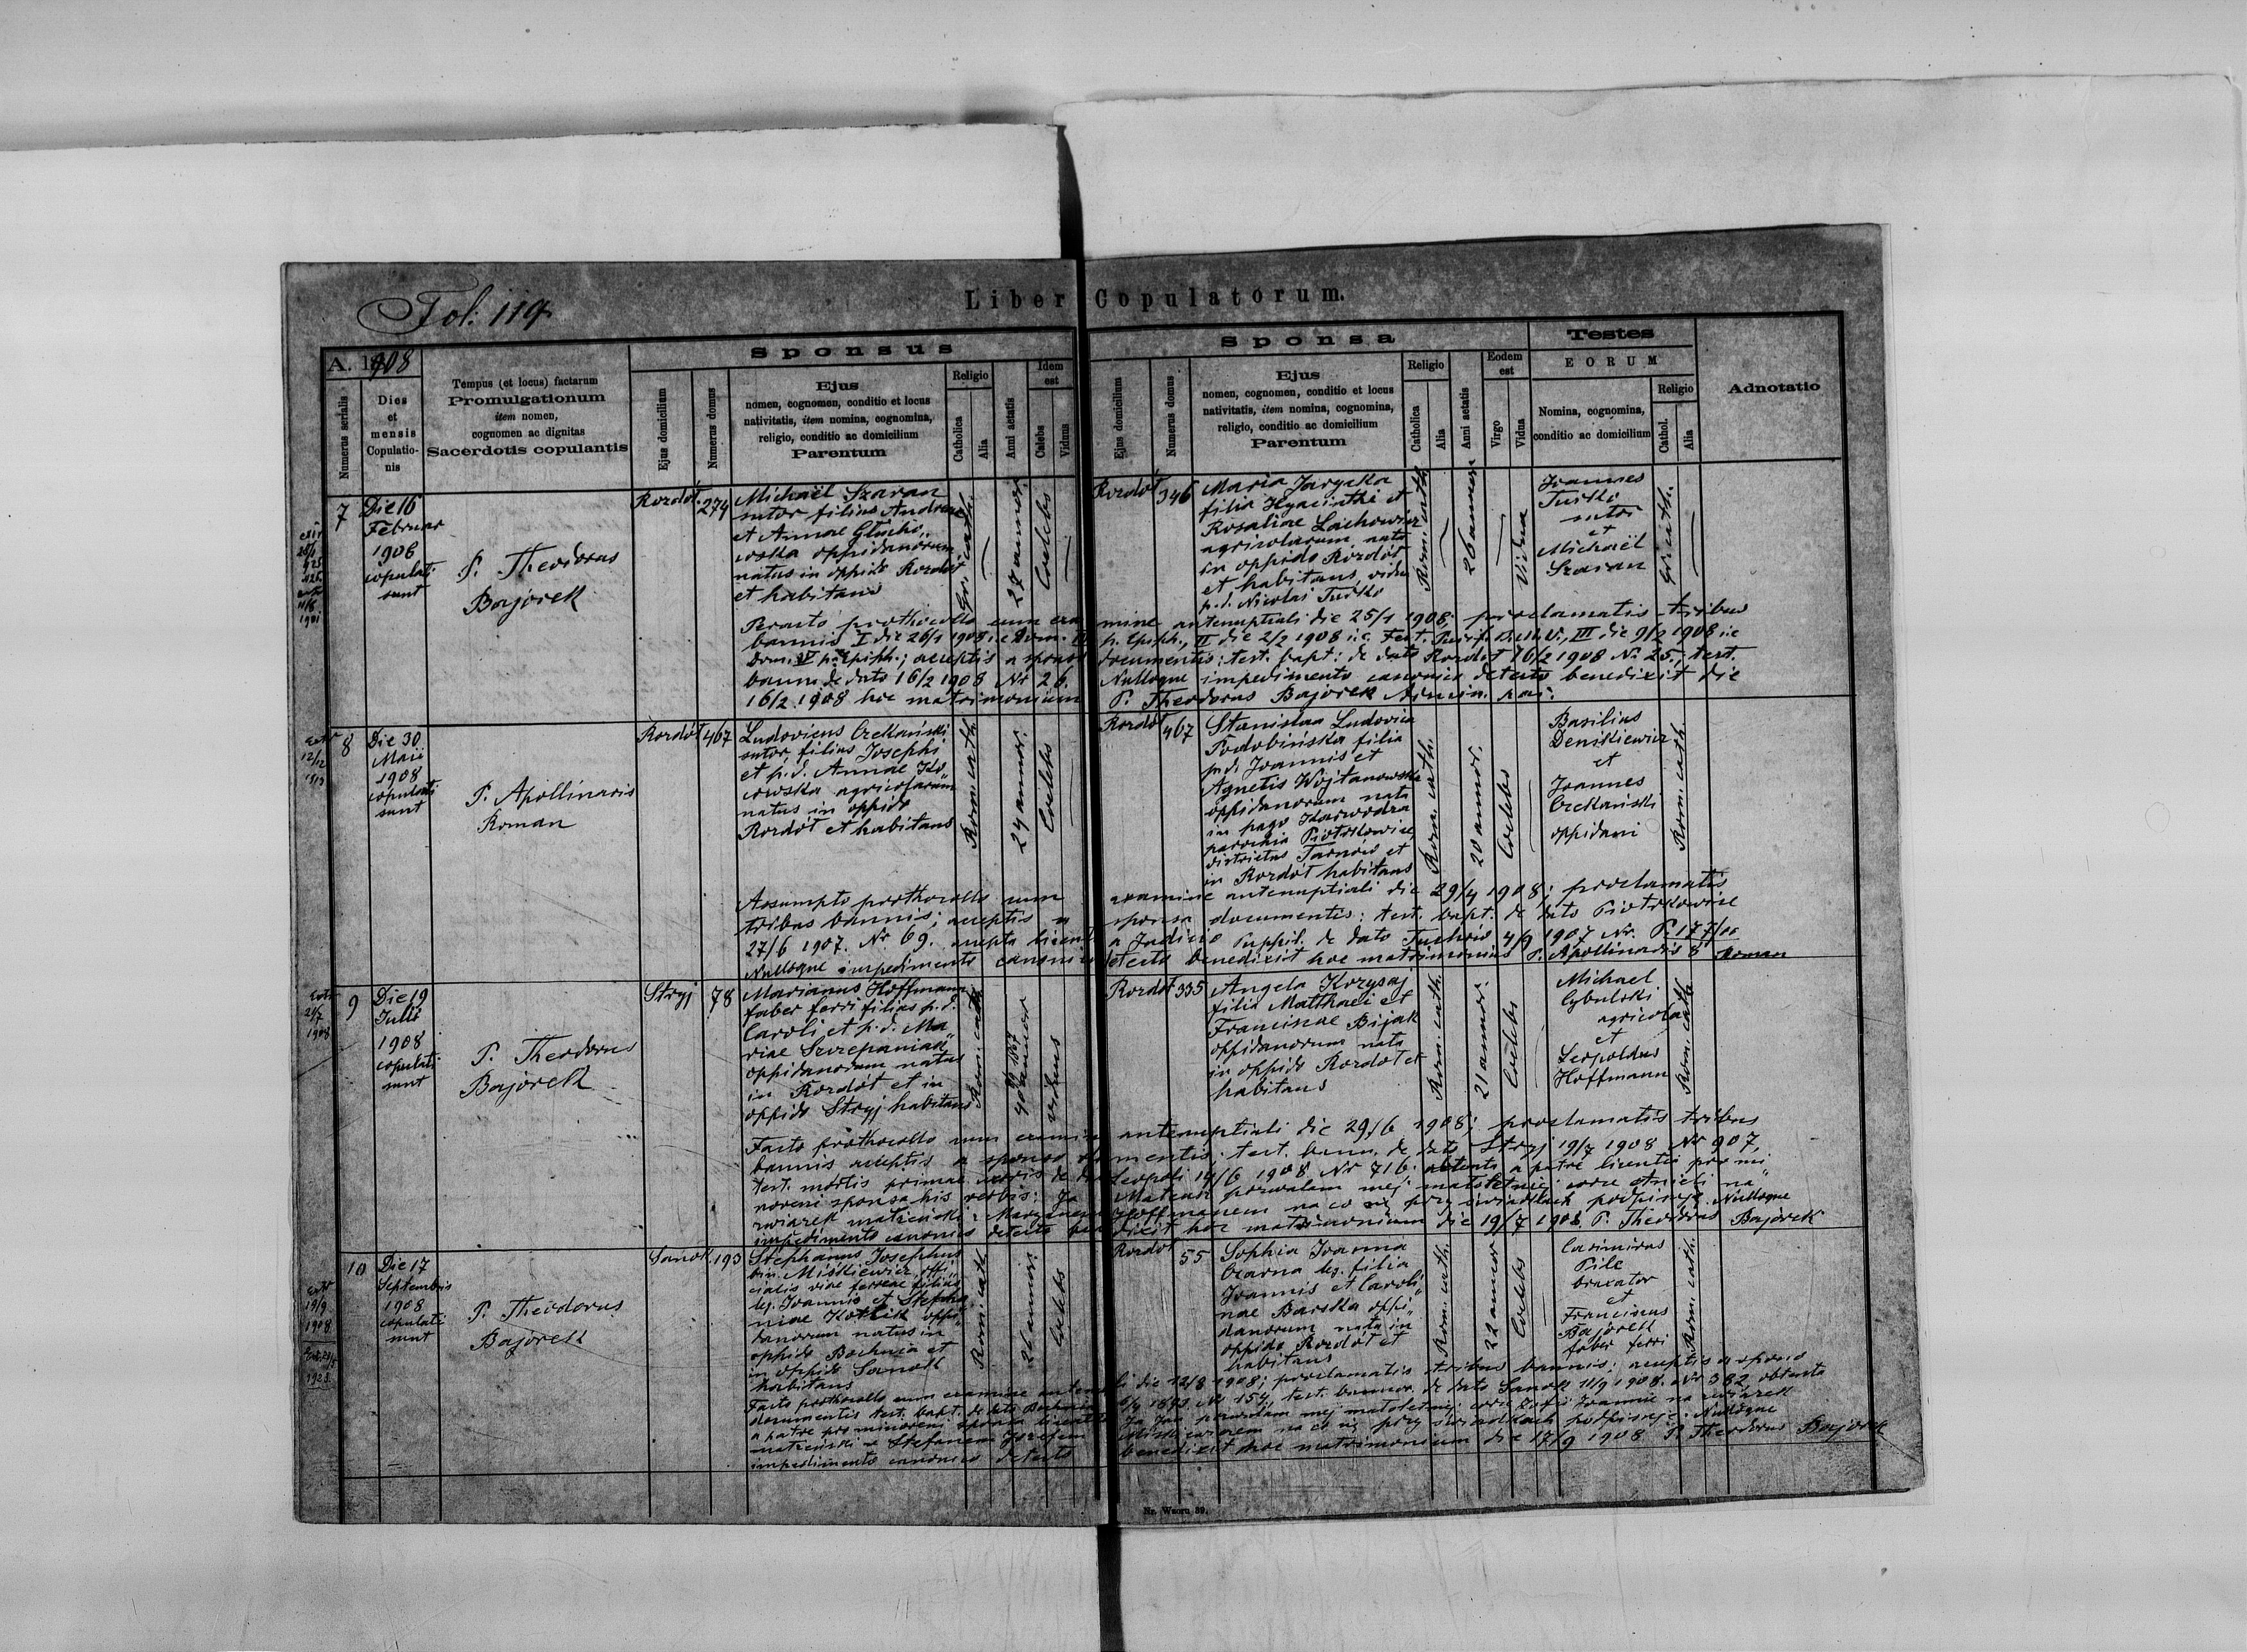 Fol: 119.
Liber Copulatorum.
A. 1908
Numerus serialis
Dies
et
mensis
Copulatio-
nis
Tempus (et locus) factarum
Promulgationum
item nomen,
cognomen ac dignitas
Sacerdotis copulantis
Sponsus
Ejus domicilium
Numerus domus
Ejus
nomen, cognomen, conditio et locus
nativitatis, item nomina, cognomina,
religio, conditio ac domicilium
Parentum
Religio
Catholica
Alia
Anni aetatis
Idem
est
Caelebs
Viduus
Sponsa
Ejus domicilium
Numerus domus
Ejus
nomen, cognomen, conditio et locus
nativitatis, item nomina, cognomina,
religio, conditio ac domicilium
Parentum
Religio
Catholica
Alia
Anni aetatis
Eodem
est
Virgo
Vidua
Testes
EORUM
Nomina, cognomina,
conditio ac domicilium
Religio
Cathol.
Alia
Adnotatio
7
Die 16
Februar
1908
copulati
sunt
P. Theodorus
Bajorek
Rozdół
274
Michaël Szaran
sutor filius Andreae
et Annae
oppidanorum
natus in oppido Rozdół
et habitans
Gr. cath.
27 annor.
Coelebs
Rozdół
346
Maria Jarycka
filia Hyacinthi et
Rosaliae Lachowicz
agricolarum nata
in oppido Rozdół
et habitans, vidua
p. d. Nicolai Turko
Rom. cath.
26 annor.
Vidua
Joannes
Turko
sutor
et
Michaël
Szaran
Gr. cath.
Peracto prothocollo cum examine antenuptiali die 25/1 1908; proclamatis tribus
bannis I die 26/1 1908 i.e Dom. III p. Epiph., II die 2/2 1908 i.e. Fest. Purif. B.M.V., III die 9/2 1908 i.e
Dom. V p. Epiph.; acceptis a sponso documentis: test. bapt: de dato Rozdół 16/2 1908 Nr 25., test.
bann. de dato 16/2 1908 Nr 26. Nulloque impedimento canonico detecto benedixit die
16/2 1908 hoc matrimonium P. Theodorus Bajorek
8
Die 30
Maii
1908
copulati
sunt
P. Apollinaris
Roman
Rozdół
467
Ludovicus Czekański
sutor, filius Josephi
et p. d. Annae Ko„
cowska agricolarum
natus in oppido
Rozdół et habitans
Rom. cath.
24 annor.
Coelebs
Rozdół
467
Stanislaa Ludovica
Podobińska filia
p. d. Joannis et
Agnetis Wojtanowska
oppidanorum nata
in pago Karwodra
parochia Piotrkowice
districtus Tarnów et
in Rozdół habitans
Rom. cath.
20 annor.
Coelebs
Basilius
Denskiewicz
et
Joannes
Czekański
oppidani
Rom. cath.
Assumpto prothocollo cum examine antenuptiali die 29/4 1908; proclamatis
tribus bannis; acceptis a sponsa documentis: test. bapt. de dato Piotrkowice
27/6 1907. Nr 69. accepta licentia a Judicio Puppil. de dato Tuchów 4/9 1907 Nr. P. 177/00
Nulloque impedimento canonico detecto benedixit hoc matrimonium P. Apollinaris Roman
9
Die 19
Julii
1908
copulati
sunt
P. Theodorus
Bajorek
Stryj
78
Marianus Hoffmann
faber ferri filius p. d.
Caroli et p. d. Ma„
riae Szczepaniak
oppidanorum natus
in Rozdół et in
oppido Stryj habitans
Rom. cath.
40 annor
viduus
Rozdół
335
Angela Korysaj
filia Matthaei et
Franciscae Bijak
oppidanorum nata
in oppido Rozdół et
habitans
Rom. cath.
21 annor.
Coelebs
Michael
Cybulski
agricola
et
Leopoldus
Hoffmann
Rom. cath.
Facto prothocollo cum examine antenuptiali die 29/6 1908; proclamatis tribus
bannis acceptis a sponso documentis: test. bann. de dato Stryj 19/7 1908 Nr 907,
test. mortis primae uxoris de dato Leopoli 14/6 1908 Nr 716. obtenta a patre licentia pro mi„
noreni sponsa his verbis: Ja Mateusz pozwalam mej małoletniej córce Anieli na
związek małżeński z Maryanem Hoffmanem na co się przy świadkach podpisuję. Nulloque
impedimento canonico detecto benedixit hoc matrimonium die 19/7 1908. P. Theodorus Bajorek
10
Die 17
Septembris
1908
copulati
sunt
P. Theodorus
Bajorek
Sanok
193
Stephanus Josephus
bin. Miśkiewicz offi„
cialis viae ferreae filius
leg. Joannis et Stepha„
niae Kotlik oppi„
danorum natus in
oppido Bochnia et
in oppido Sanok
habitans
Rom. cath.
26 annor.
Coelebs
Rozdół
55
Sophia Joanna
Czarna leg. filia
Joannis et Caroli„
nae Barska oppi„
danorum nata in
oppido Rozdół et
habitans
Rom. cath.
22 annor
Coelebs
Casimirus
Pile
braxator
et
Franciscus
Bajorek
faber ferri
Rom. cath.
Facto prothocollo cum examine antenuptiali die 12/8 1908; proclamatis tribus bannis; acceptis a sponso
documentis test. bapt. de dato Bochnia Nr 154, test. bannor. de dato Sanok 11/9 1908. Nr 382 obtenta
a patre pro minoreni sponsa licentia Ja Jan pozwalam mej małoletniej córce Zofii Joannie na związek
małżeński z Stefanem Józefem Miśkiewiczem na co się przy świadkach podpisuję. Nulloque
impedimento canonico detecto benedixit hoc matrimonium die 17/9 1908 P. Theodorus Bajorek
Nr. Wzoru 39.